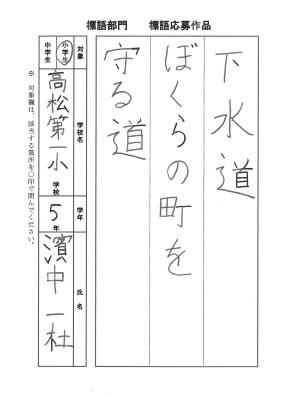 標語部門　標語応募作品
下水道
ぼくらの町を
守る道
対象
小学生
中学生
学校名
高松第一小学校
学年
5年
氏名
濱中一杜
※ 対象欄は、該当する箇所を〇印で囲んでください。